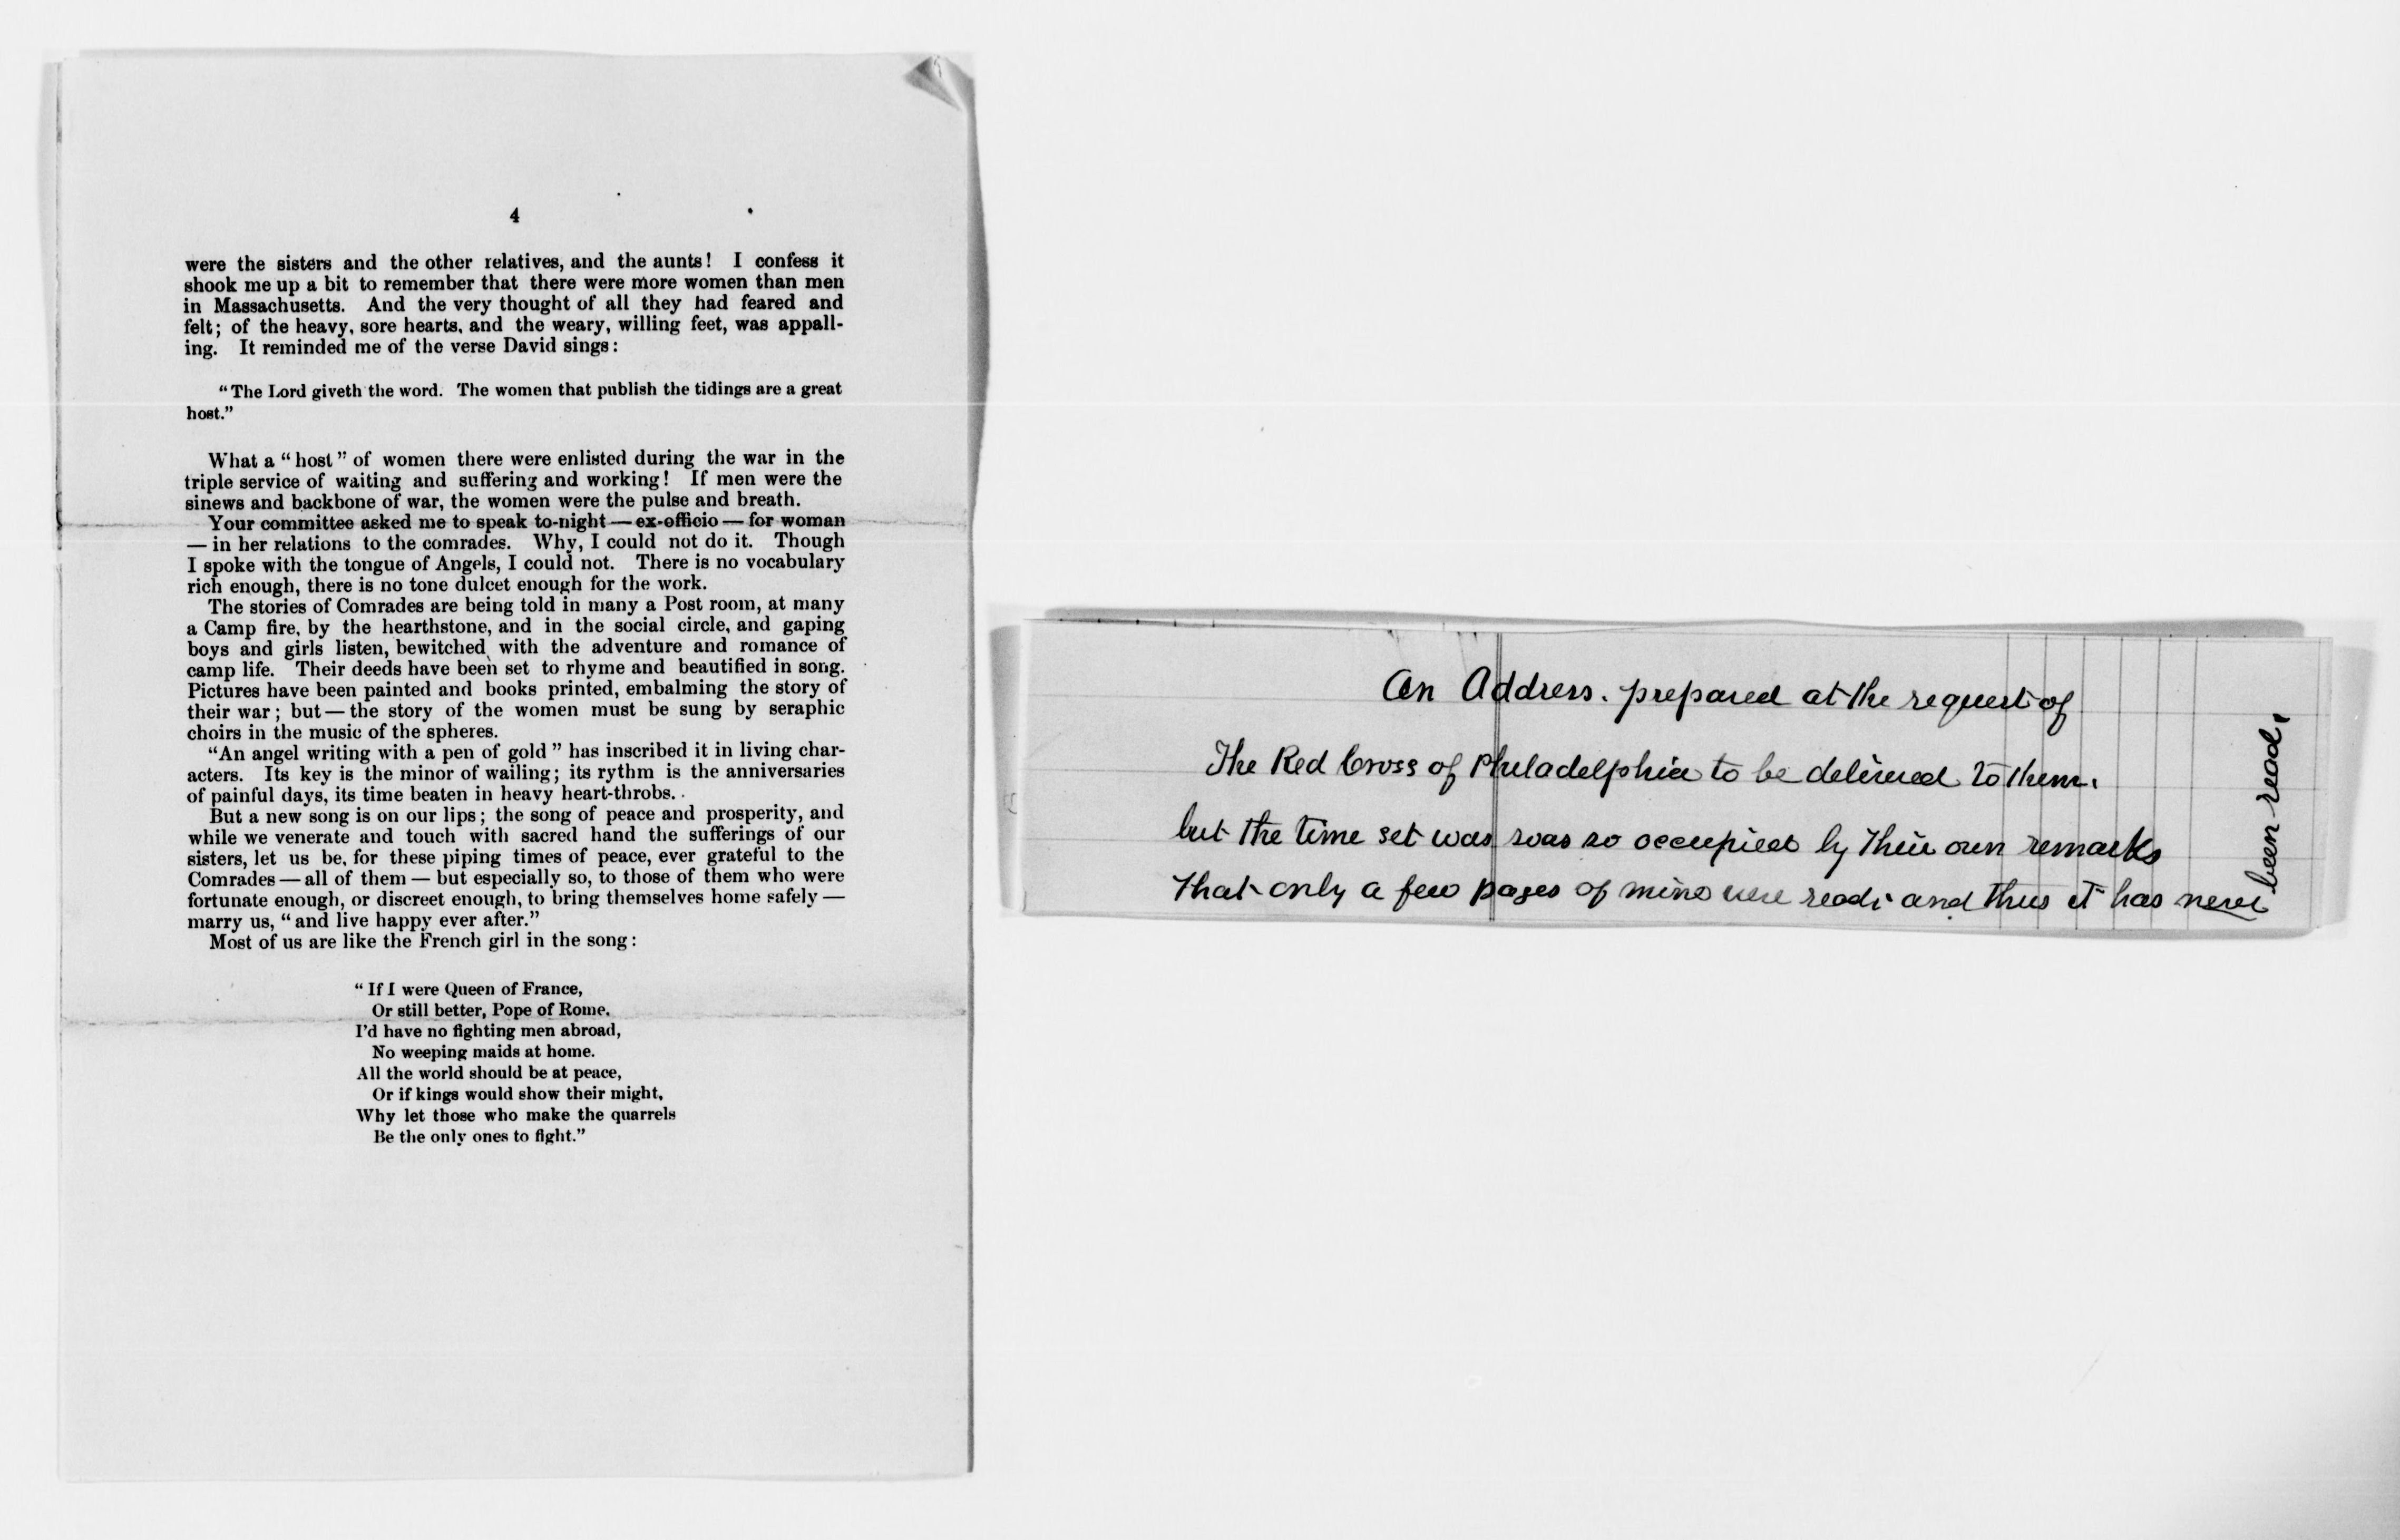 4
were the sisters and the other relatives, and the aunts! I confess it
shook me up a bit to remember that there were more women than men
in Massachusetts. And the very thought of all they had feared and
felt; of the heavy, sore hearts, and the weary, willing feet, was appall-
ing. It reminded me of the verse David sings:
"The Lord giveth the word. The women that publish the tidings are a great
host."
What a "host" of women there were enlisted during the war in the
triple service of waiting and suffering and working! If men were the
sinews and backbone of war, the women were the pulse and breath.
Your committee asked me to speak to-night — ex-officio — for woman
— in her relations to the comrades. Why, I could not do it. Though
I spoke with the tongue of Angels, I could not. There is no vocabulary
rich enough, there is no tone dulcet enough for the work.
The stories of Comrades are being told in many a Post room, at many
a Camp fire, by the hearthstone, and in the social circle, and gaping
boys and girls listen, bewitched with the adventure and romance of
camp life. Their deeds have been set to rhyme and beautified in song.
Pictures have been painted and books printed, embalming the story of
their war; but — the story of the women must be sung by seraphic
choirs in the music of the spheres.
"An angel writing with a pen of gold" has inscribed it in living char-
acters. Its key is the minor of wailing; its rythm is the anniversaries
of painful days, its time beaten in heavy heart-throbs.
But a new song is on our lips; the song of peace and prosperity, and
while we venerate and touch with sacred hand the sufferings of our
sisters, let us be, for these piping times of peace, ever grateful to the
Comrades — all of them — but especially so, to those of them who were
fortunate enough, or discreet enough, to bring themselves home safely —
marry us, "and live happy ever after."
Most of us are like the French girl in the song:
"If I were Queen of France,
Or still better, Pope of Rome.
I'd have no fighting men abroad,
No weeping maids at home.
All the world should be at peace,
Or if kings would show their might,
Why let those who make the quarrels
Be the only ones to fight."
An Address. prepared at the request of
The Red Cross of Philadelphia to be delivered to them.
but the time set was was so occupied by their own remarks
that only a few pages of mine were read. and thus it has never
been read.